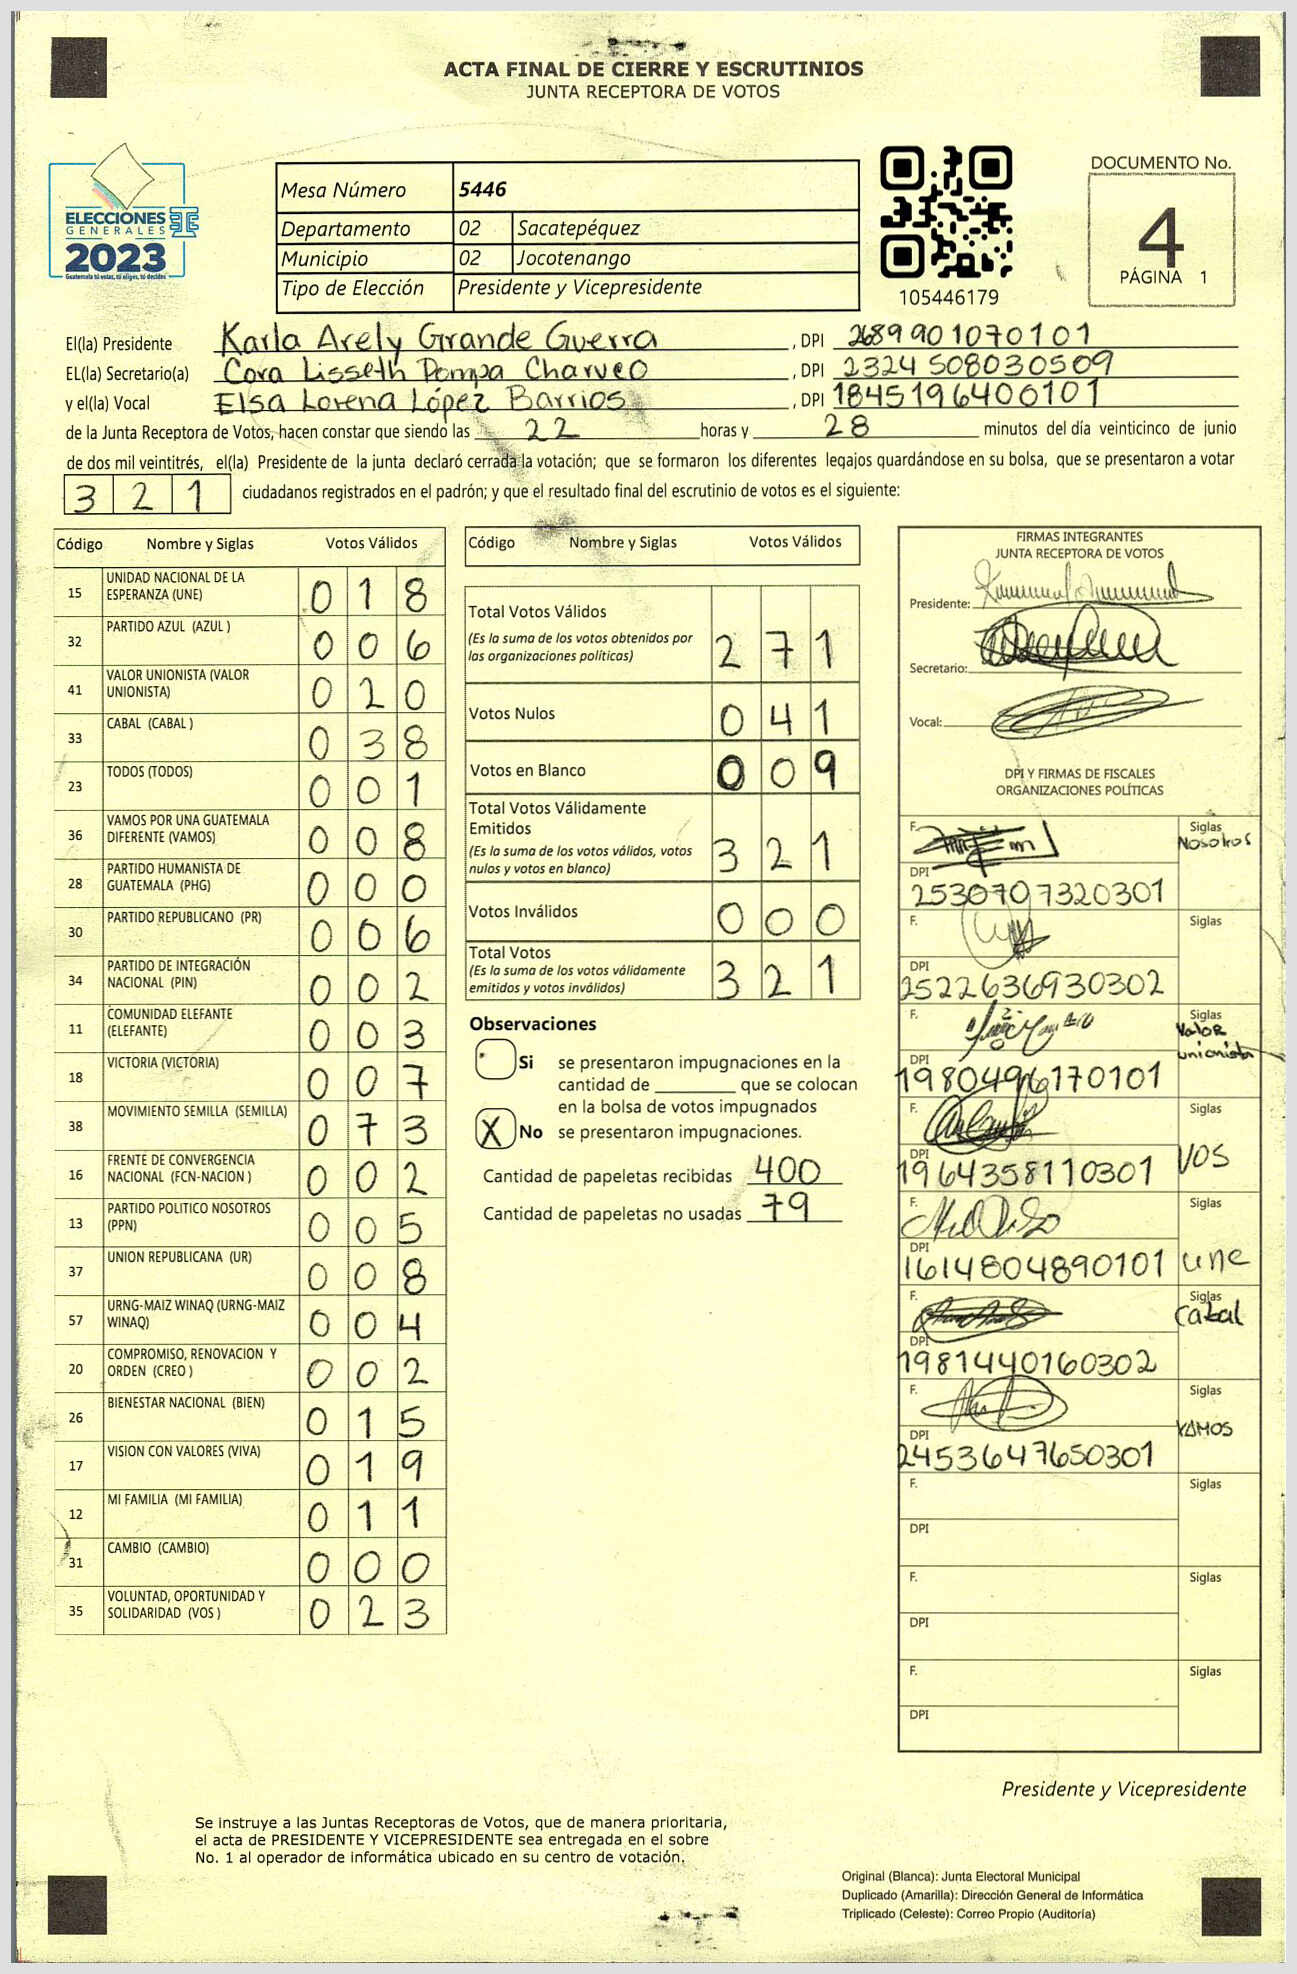 ACTA FINAL DE CIERRE Y ESCRUTINIOS
JUNTA RECEPTORA DE VOTOS
ELECCIONES
GENERALES
2023
Guatemala tú votas, tú eliges, tú decides
Mesa Número 5446
Departamento 02 Sacatepéquez
Municipio 02 Jocotenango
Tipo de Elección Presidente y Vicepresidente
105446179
DOCUMENTO No.
4
PÁGINA 1
El(la) Presidente Karla Arely Grande Guerra, DPI 2689901070101
EL(la) Secretario(a) Cora Lisseth Pompa Charveo, DPI 2324508030509
y el(la) Vocal Elsa Lorena López Barrios, DPI 1845196400101
de la Junta Receptora de Votos, hacen constar que siendo las 22 horas y 28 minutos del día veinticinco de junio
de dos mil veintitrés, el(la) Presidente de la junta declaró cerrada la votación; que se formaron los diferentes legajos guardándose en su bolsa, que se presentaron a votar
321 ciudadanos registrados en el padrón; y que el resultado final del escrutinio de votos es el siguiente:
Código Nombre y Siglas Votos Válidos
15 UNIDAD NACIONAL DE LA ESPERANZA (UNE) 018
32 PARTIDO AZUL (AZUL ) 006
41 VALOR UNIONISTA (VALOR UNIONISTA) 020
33 CABAL (CABAL ) 038
23 TODOS (TODOS) 001
36 VAMOS POR UNA GUATEMALA DIFERENTE (VAMOS) 008
28 PARTIDO HUMANISTA DE GUATEMALA (PHG) 000
30 PARTIDO REPUBLICANO (PR) 006
34 PARTIDO DE INTEGRACIÓN NACIONAL (PIN) 002
11 COMUNIDAD ELEFANTE (ELEFANTE) 003
18 VICTORIA (VICTORIA) 007
38 MOVIMIENTO SEMILLA (SEMILLA) 073
16 FRENTE DE CONVERGENCIA NACIONAL (FCN-NACION ) 002
13 PARTIDO POLITICO NOSOTROS (PPN) 005
37 UNION REPUBLICANA (UR) 008
57 URNG-MAIZ WINAQ (URNG-MAIZ WINAQ) 004
20 COMPROMISO, RENOVACION Y ORDEN (CREO ) 002
26 BIENESTAR NACIONAL (BIEN) 015
17 VISION CON VALORES (VIVA) 019
12 MI FAMILIA (MI FAMILIA) 011
31 CAMBIO (CAMBIO) 000
35 VOLUNTAD, OPORTUNIDAD Y SOLIDARIDAD (VOS ) 023
Código Nombre y Siglas Votos Válidos
Total Votos Válidos 271
(Es la suma de los votos obtenidos por
las organizaciones políticas)
Votos Nulos 041
Votos en Blanco 009
Total Votos Válidamente
Emitidos 321
(Es la suma de los votos válidos, votos
nulos y votos en blanco)
Votos Inválidos 000
Total Votos 321
(Es la suma de los votos válidamente
emitidos y votos inválidos)
Observaciones
Si se presentaron impugnaciones en la
cantidad de ________ que se colocan
en la bolsa de votos impugnados
X No se presentaron impugnaciones.
Cantidad de papeletas recibidas 400
Cantidad de papeletas no usadas 79
FIRMAS INTEGRANTES
JUNTA RECEPTORA DE VOTOS
Presidente:
Secretario:
Vocal:
DPI Y FIRMAS DE FISCALES
ORGANIZACIONES POLÍTICAS
F. Siglas Nosotros
DPI 2530707320301
F. Siglas
DPI 2522636930302
F. Siglas Valor unionista
DPI 1980496170101
F. Siglas VOS
DPI 1964358110301
F. Siglas une
DPI 1614804890101
F. Siglas Cabal
DPI 1981440160302
F. Siglas VAMOS
DPI 2453647650301
F. Siglas
DPI
F. Siglas
DPI
F. Siglas
DPI
Presidente y Vicepresidente
Se instruye a las Juntas Receptoras de Votos, que de manera prioritaria,
el acta de PRESIDENTE Y VICEPRESIDENTE sea entregada en el sobre
No. 1 al operador de informática ubicado en su centro de votación.
Original (Blanca): Junta Electoral Municipal
Duplicado (Amarilla): Dirección General de Informática
Triplicado (Celeste): Correo Propio (Auditoría)